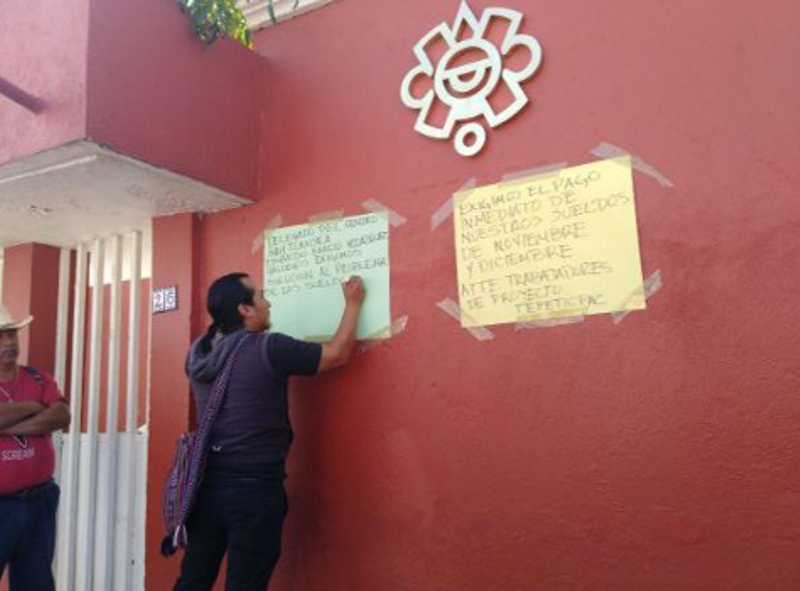 DELEGADO DEL CENTRO
INAH TLAXCALA
EXIGIMOS
SOLUCION AL PROBLEMA
DE LOS SUELDOS
EXIGIMOS EL PAGO
INMEDIATO DE
NUESTROS SUELDOS
DE NOVIEMBRE
Y DICIEMBRE
ATTE TRABAJADORES
DE PROYECTO
TEPETICPAC
SCREAM